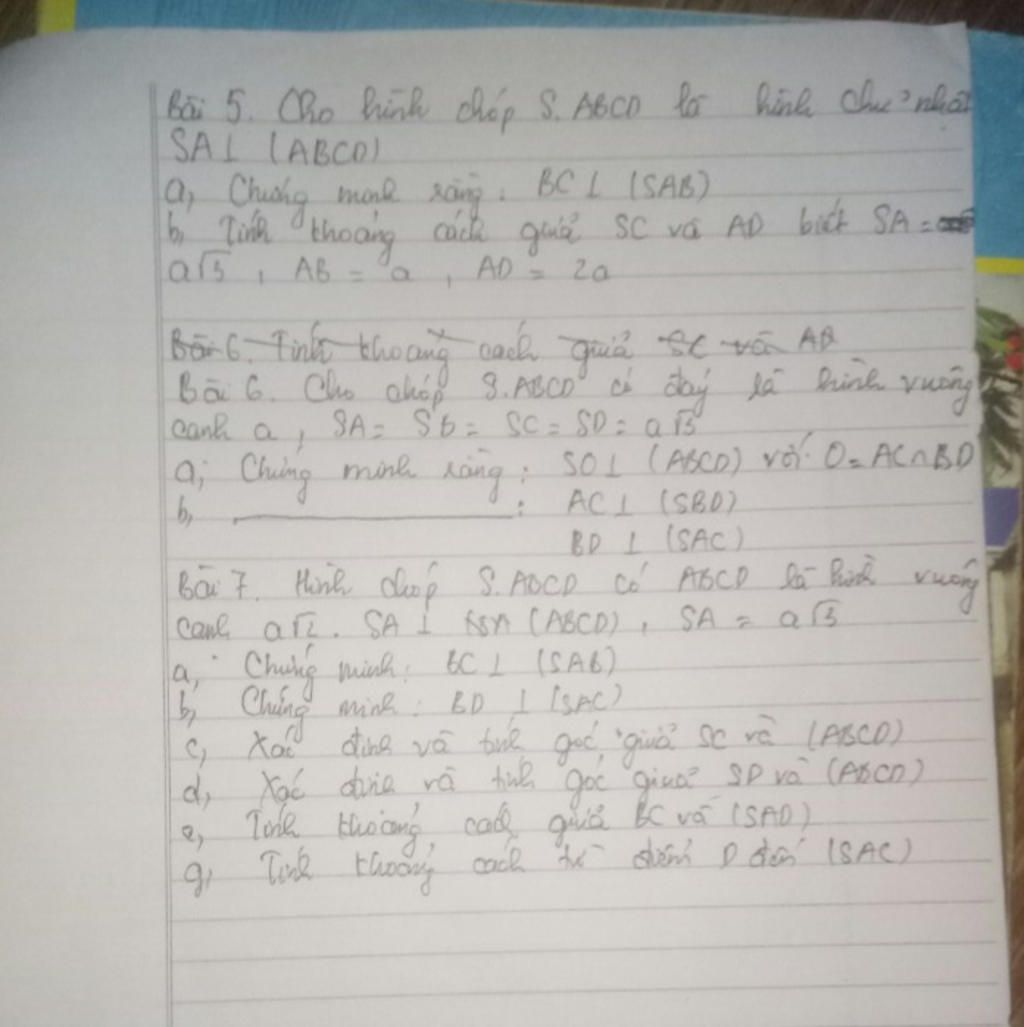 Bài 5. Cho hình chóp S.ABCD là hình chữ nhật
SA⊥ (ABCD)
a, Chứng minh rằng: BC⊥ (SAB)
b, Tính khoảng cách giữa SC và AD biết SA =
a√3, AB = a, AD = 2a
Bài 6. Tính khoảng cách giữa SC và AB
Bài 6. Cho chóp S.ABCD có đáy là hình vuông
cạnh a, SA = SB = SC = SD = a√3
a, Chứng minh rằng: SO⊥ (ABCD) với O = AC∩BD
b, ————————: AC⊥ (SBD)
BD ⊥ (SAC)
Bài 7. Hình chóp S.ABCD có ABCD là hình vuông
cạnh a√2. SA ⊥ (ABCD), SA = a√3
a, Chứng minh: BC⊥ (SAB)
b, Chứng minh: BD ⊥ (SAC)
c, Xác định và tính góc giữa SC và (ABCD)
d, Xác định và tính góc giữa SD và (ABCD)
e, Tính khoảng cách giữa BC và (SAD)
g, Tính khoảng cách từ điểm D đến (SAC)